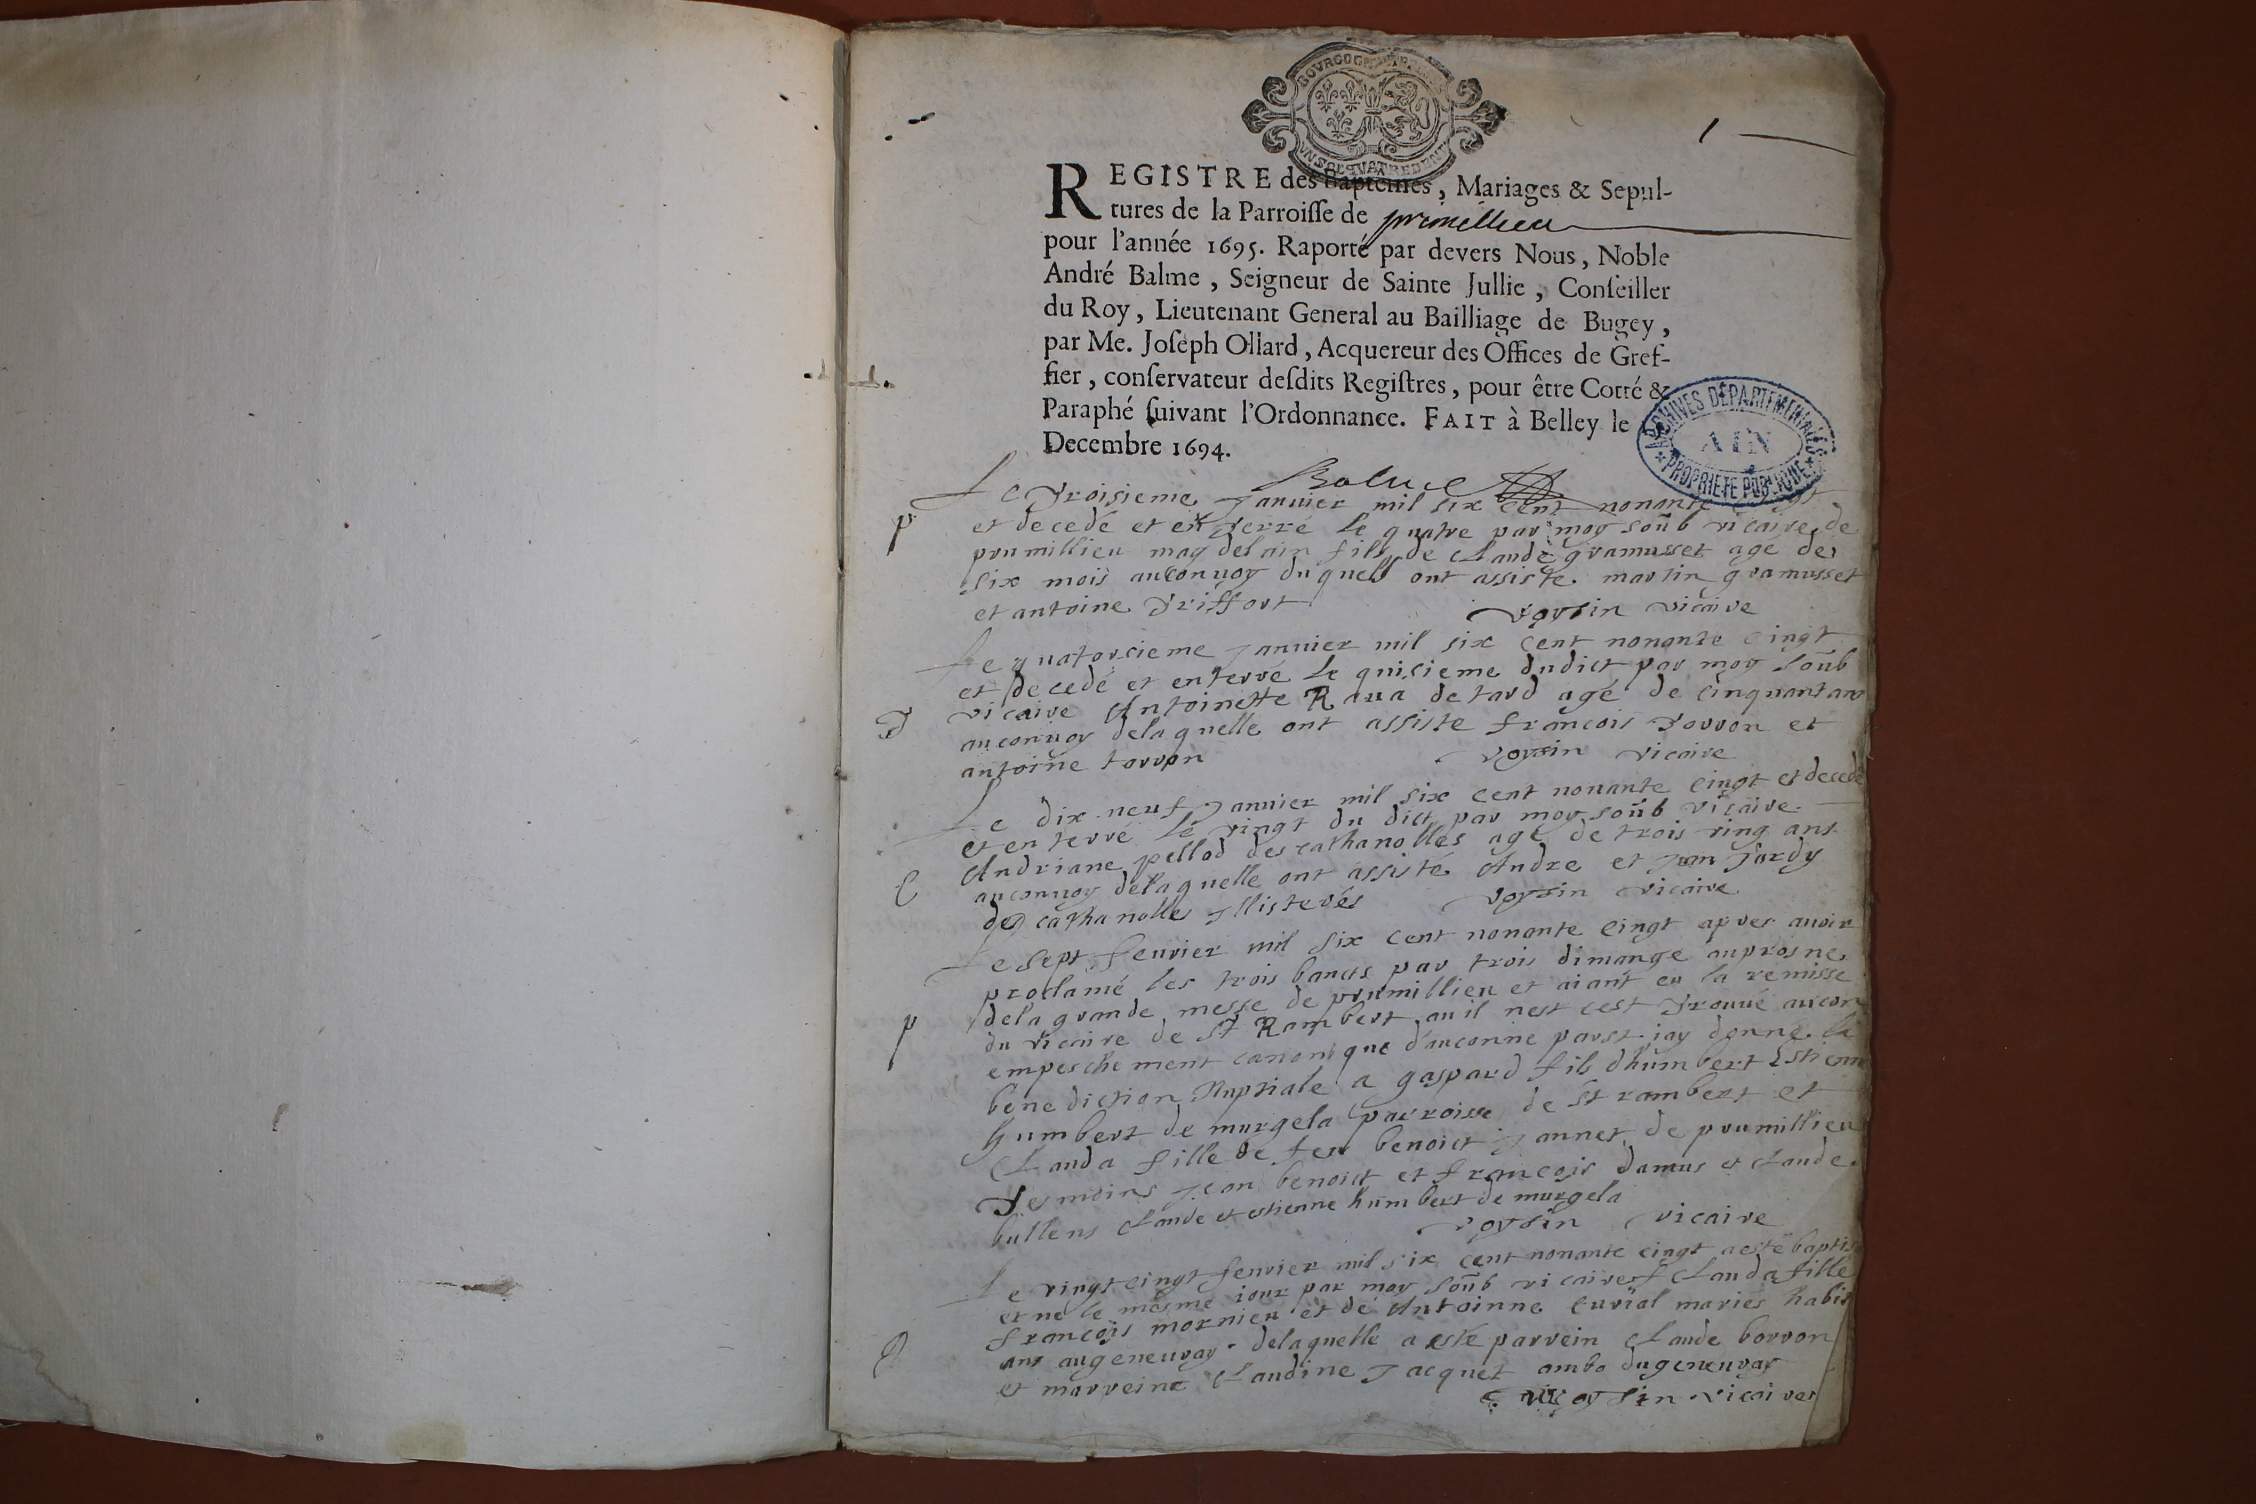 1
BOURGOGNE
UN SOL QUATRE DEN
REGISTRE des Baptémes, Mariages & Sepul-
tures de la Parroisse de prumillieu
pour l'année 1695. Raporté par devers Nous, Noble
André Balme, Seigneur de Sainte Jullie, Conseiller
du Roy, Lieutenant General au Bailliage de Bugey,
par Me. Joseph Ollard, Acquereur des Offices de Gref-
fier, conservateur desdits Registres, pour être Cotté &
Paraphé suivant l'Ordonnance. FAIT à Belley le
Decembre 1694.
ARCHIVES DÉPARTEMENTALES
AIN
PROPRIETE PUBLIQUE
Balme
Le troisieme Janvier mil six cent nonante
p et decedé et enterré le quatre par moy soub vicaire de
prumillieu magdelain fils de Claude gramusset age de
six mois auconvoy duquel ont assiste martin gramusset
et antoine triffort voysin vicaire
Le quatorsieme Janvier mil six cent nonante cinqt
et decedé et enterré le quisieme dudict par moy soub
vicaire Antoinette Raua de tard agé de cinquant ans
auconvoy delaquelle ont assiste francois torron et
antoine torron voysin vicaire
Le dix neuf Janvier mil six cent nonante cinqt et decedé
et enterré le vingt du dict par moy soub vicaire
Andriane pellod des cathanolles agé de trois ving ans
auconvoy delaquelle ont assisté Andre et Jean Jordy
des cathanolles Illisterés voysin vicaire
Le sept fevrier mil six cent nonante cinqt apres avoir
proclamé les trois bancts par trois dimange auprosne
p dela grande messe de prumillieu et aiant eu la remisse
du vicaire de St Rambert qu il nest cest trouvé aucon
empeschement canonique d'auconne parst jay donné la
benediction Nuptiale a gaspard fils dhumbert Estienne
humbert de murgela parroisse de St rambert et
Clauda fille de feu benoict Jannet de prumillieu
tesmoins Jean benoict et francois damus et claude
bullens claude et estienne humbert de murgela
voysin vicaire
Le vingt cinqt fevrier mil six cent nonante cinqt a esté baptis
et ne le mesme iour par moy soub vicaire Clauda fille
francois mornieu et de Antoinne cuvial mariés habit
ans augeneuray delaquelle a esté parrein Claude borron
et marreine Claudine Jacquet ambo dugeneuray
voysin vicaire